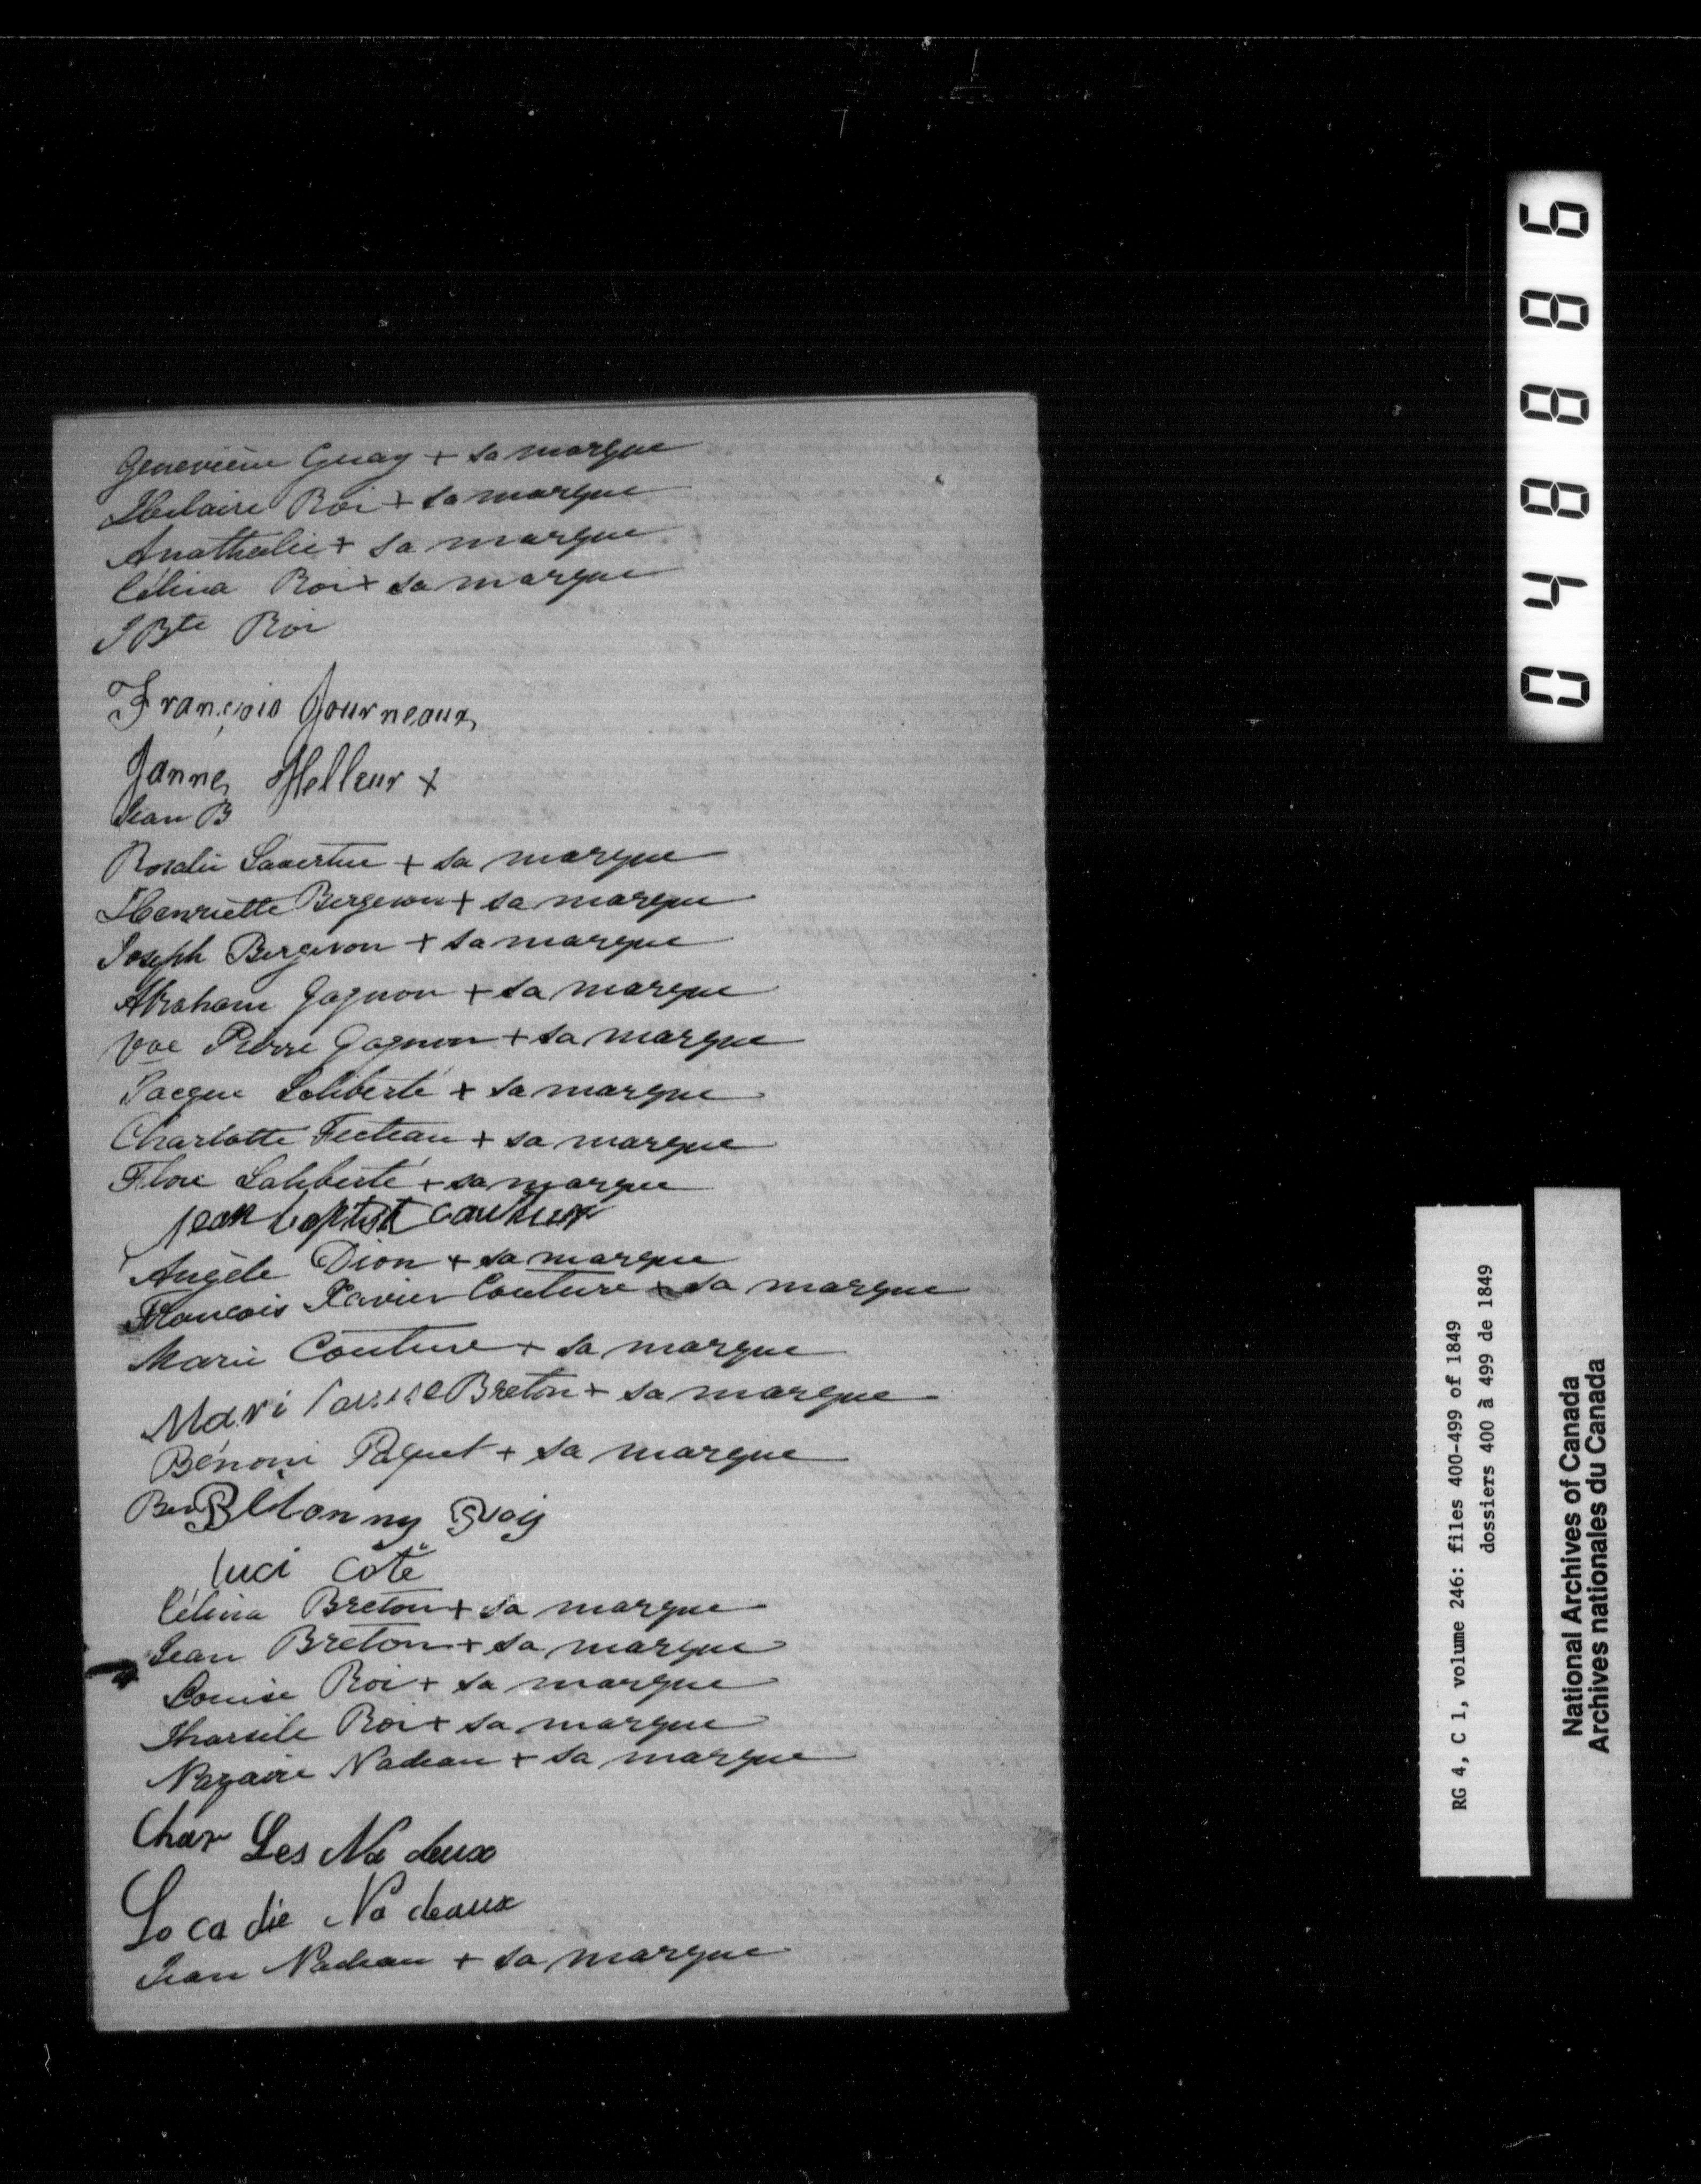 Genevieve Guay + sa marque
Hilaire Roi + sa marque
Anathalie + sa marque
Célina Roi + sa marque
J Bte Roi
François Journeaux
Janne Helleur +
Jean B
Rosalie Lavertue + sa marque
Henriette Bergeron + sa marque
Joseph Bergeron + sa marque
Abraham Gagnon + sa marque
Vve Pierre Gagnon + sa marque
Jacque Laliberté + sa marque
Charlotte Fecteau + sa marque
Flore Laliberté + sa marque
jean baptist couture
Angèle Dion + sa marque
François Xavier Couture + sa marque
Marie Couture + sa marque
Mari Louise Breton + sa marque
Bénoni Paquet + sa marque
Guay
luci Coté
Célina Breton + sa marque
Jean Breton + sa marque
Louise Roi + sa marque
Tharsile Roi + sa marque
Nazaire Nadeau + sa marque
Char Les Na deux
Lo ca die Na deaux
Jean Nadeau + sa marque
048886
RG 4, C 1, volume 246: files 400-499 of 1849
dossiers 400 à 499 de 1849
National Archives of Canada
Archives nationales du Canada